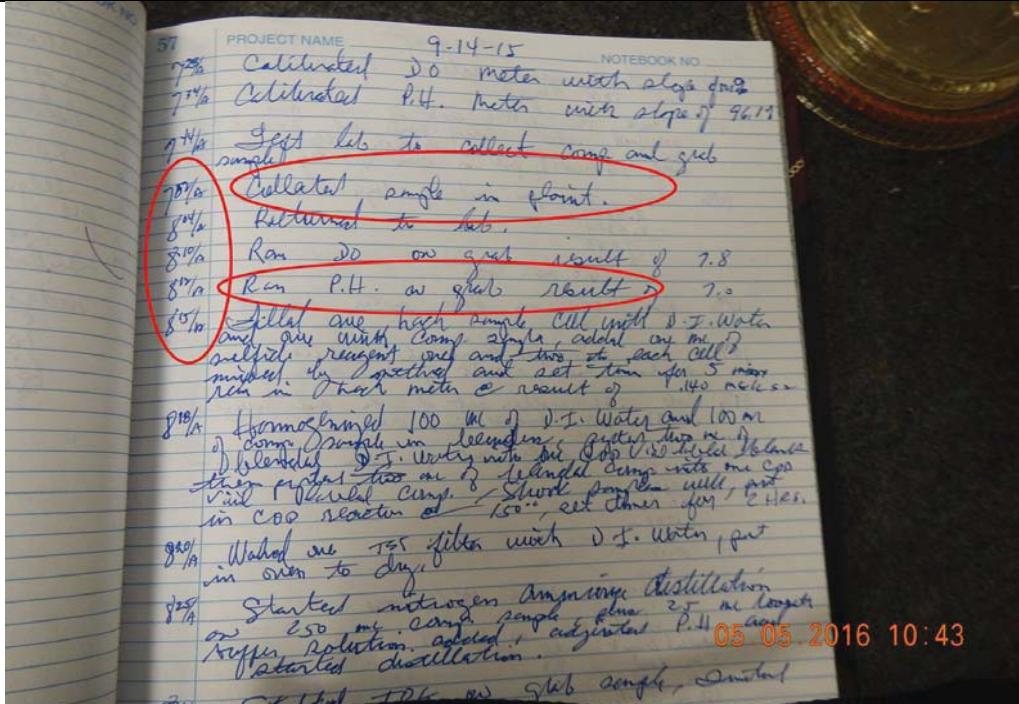 57 PROJECT NAME 9-14-15 NOTEBOOK NO.
Calibrated DO meter with slope
Calibrated P.H. meter with slope of 96.19
Left lab to collect comp and grab
sample
Collated sample in plaint.
Returned to lab.
8:10/A Ran DO on grab result of 7.8
Ran P.H. on grab result of 7.0
8:15/A Filled one hach sample cell with D.I. Water
and one with comp sample, added one ml of
sulfide reagent one and two to each cell
mixed by method and set time for 5 min
ran in hach meter @ result of .140
8:18/A Homogenized 100 ml of D.I. Water and 100 ml
of comp sample in blender, two ml of
blended D.I. Water into one COD vial
then two ml of blended comp into one COD
vial comp. Shook well, put
in COD reactor at 150°, set timer for 2 Hrs.
8:20/A Washed one TSS filter with D.I. Water, put
in oven to dry.
8:25/A Started nitrogen ammonia distillation
on 250 ml comp sample plus 25 ml
buffer solution added, adjusted P.H and
started distillation.
on grab sample,
05.05.2016 10:43